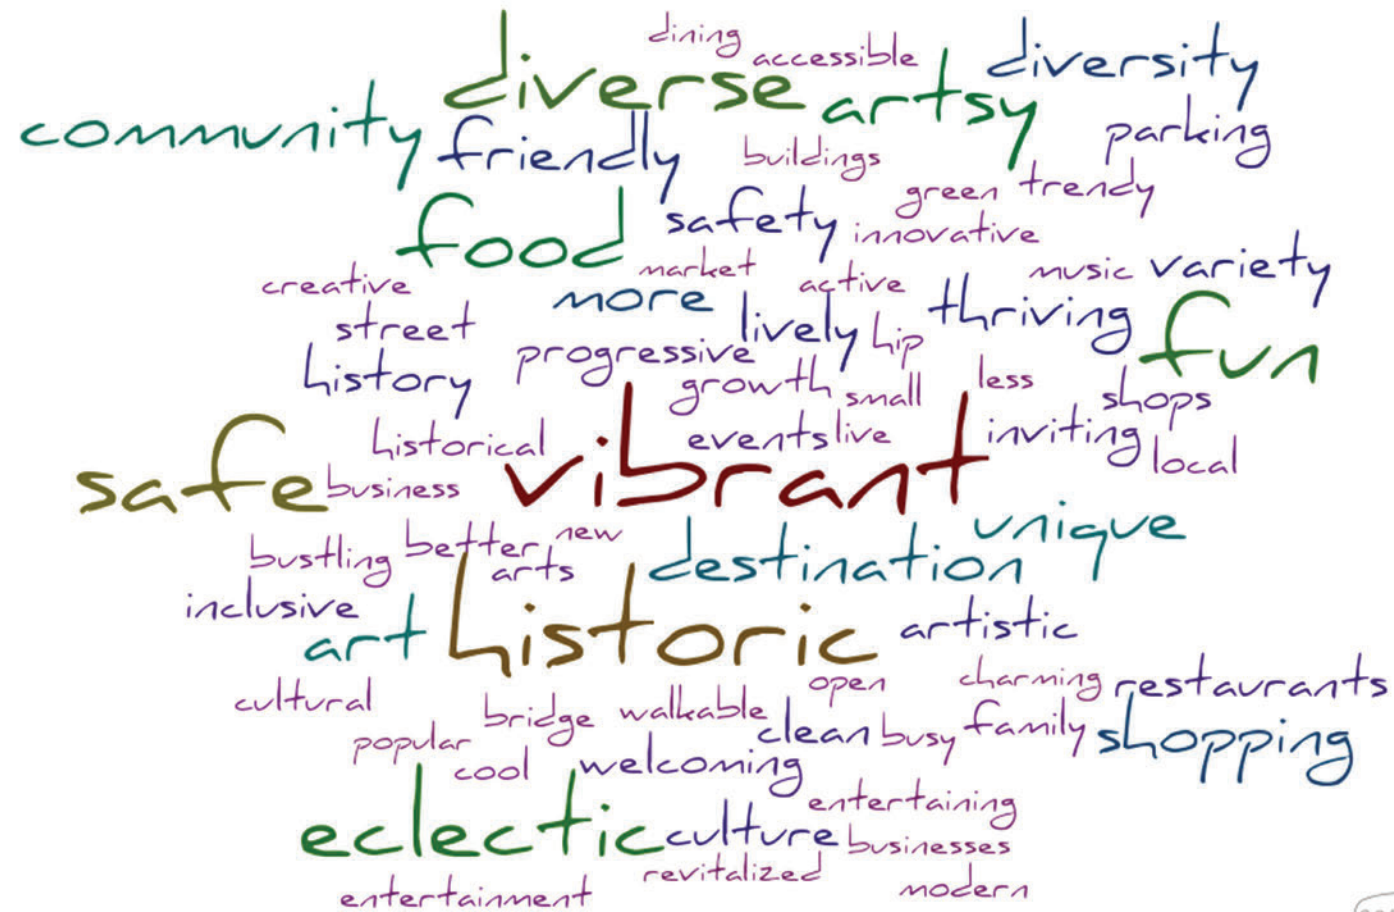 dining
accessible
diverse
artsy
diversity
community
friendly
buildings
parking
green
trendy
food
safety
innovative
creative
market
active
music
variety
street
more
lively
hip
thriving
fun
history
progressive
growth
small
less
shops
historical
events
live
inviting
local
safe
business
vibrant
unique
bustling
better
new
arts
destination
inclusive
art
historic
artistic
cultural
open
charming
restaurants
bridge
walkable
clean
busy
family
shopping
popular
cool
welcoming
entertaining
eclectic
culture
businesses
revitalized
entertainment
modern